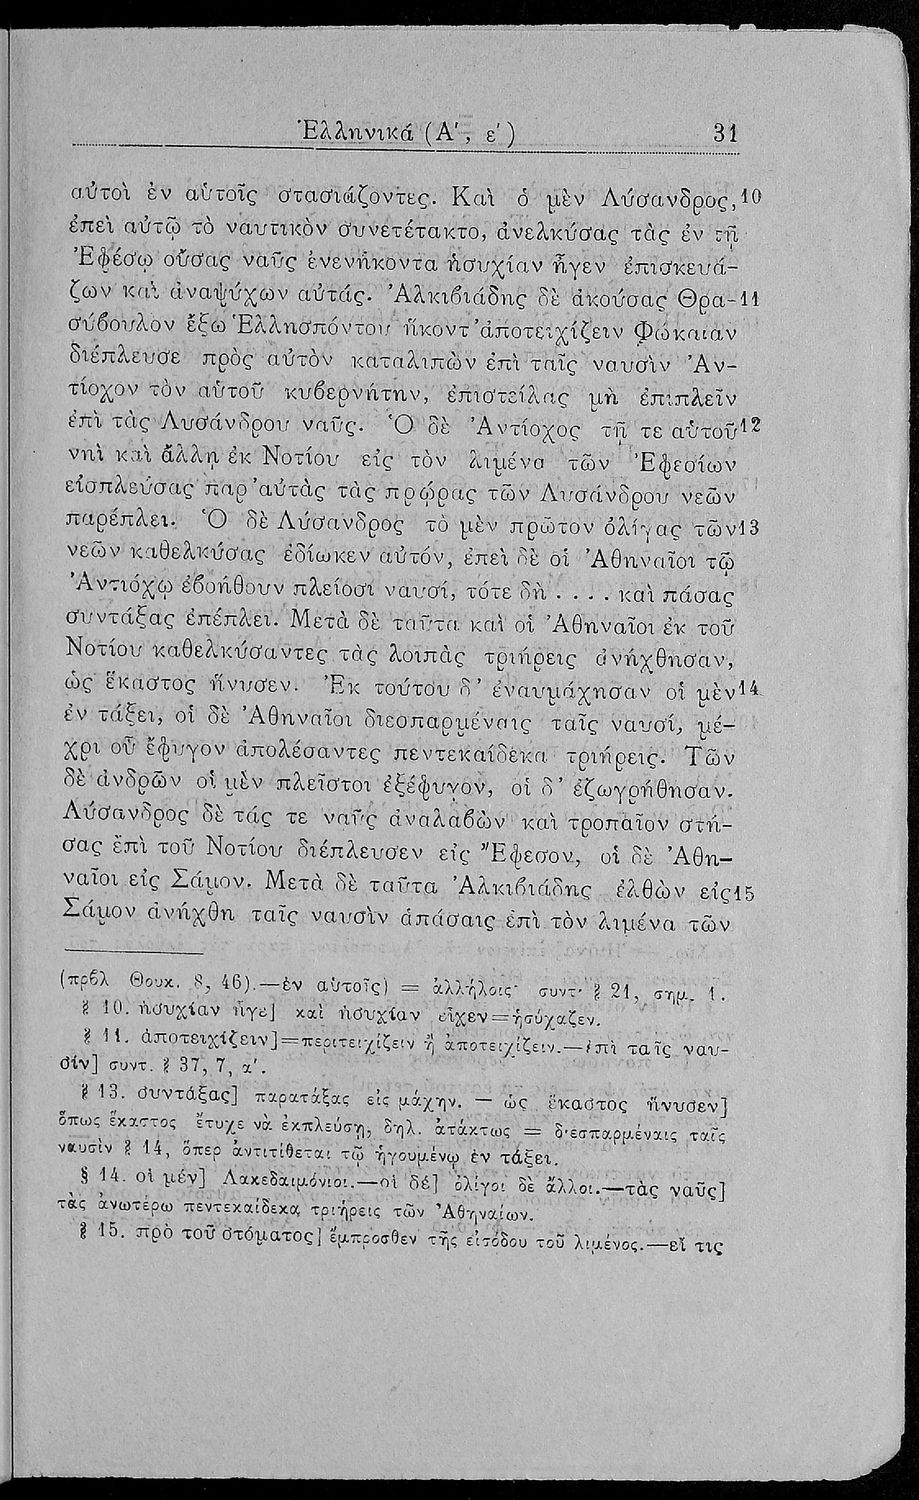 Ἑλληνικά (Α΄, ε΄) 31
αὐτοὶ ἐν αὑτοῖς στασιάζοντες. Καὶ ὁ μὲν Λύσανδρος, 10
ἐπεὶ αὐτῷ τὸ ναυτικὸν συνετέτακτο, ἀνελκύσας τὰς ἐν τῇ
Ἐφέσῳ οὔσας ναῦς ἐνενήκοντα ἡσυχίαν ἦγεν ἐπισκευά-
ζων καὶ ἀναψύχων αὐτάς. Ἀλκιβιάδης δὲ ἀκούσας Θρα- 11
σύβουλον ἔξω Ἑλλησπόντου ἥκοντ’ ἀποτειχίζειν Φώκαιαν
διέπλευσε πρὸς αὐτὸν καταλιπὼν ἐπὶ ταῖς ναυσὶν Ἀν-
τίοχον τὸν αὑτοῦ κυβερνήτην, ἐπιστείλας μὴ ἐπιπλεῖν
ἐπὶ τὰς Λυσάνδρου ναῦς. Ὁ δὲ Ἀντίοχος τῇ τε αὑτοῦ 12
νηὶ καὶ ἄλλῃ ἐκ Νοτίου εἰς τὸν λιμένα τῶν Ἐφεσίων
εἰσπλεύσας παρ’ αὐτὰς τὰς πρῴρας τῶν Λυσάνδρου νεῶν
παρέπλει. Ὁ δὲ Λύσανδρος τὸ μὲν πρῶτον ὀλίγας τῶν 13
νεῶν καθελκύσας ἐδίωκεν αὐτόν, ἐπεὶ δὲ οἱ Ἀθηναῖοι τῷ
Ἀντιόχῳ ἐβοήθουν πλείοσι ναυσί, τότε δὴ . . . . καὶ πάσας
συντάξας ἐπέπλει. Μετὰ δὲ ταῦτα καὶ οἱ Ἀθηναῖοι ἐκ τοῦ
Νοτίου καθελκύσαντες τὰς λοιπὰς τριήρεις ἀνήχθησαν,
ὡς ἕκαστος ἤνυσεν. Ἐκ τούτου δ’ ἐναυμάχησαν οἱ μὲν 14
ἐν τάξει, οἱ δὲ Ἀθηναῖοι διεσπαρμέναις ταῖς ναυσί, μέ-
χρι οὗ ἔφυγον ἀπολέσαντες πεντεκαίδεκα τριήρεις. Τῶν
δὲ ἀνδρῶν οἱ μὲν πλεῖστοι ἐξέφυγον, οἱ δ’ ἐζωγρήθησαν.
Λύσανδρος δὲ τάς τε ναῦς ἀναλαβὼν καὶ τροπαῖον στή-
σας ἐπὶ τοῦ Νοτίου διέπλευσεν εἰς Ἔφεσον, οἱ δὲ Ἀθη-
ναῖοι εἰς Σάμον. Μετὰ δὲ ταῦτα Ἀλκιβιάδης ἐλθὼν εἰς 15
Σάμον ἀνήχθη ταῖς ναυσὶν ἁπάσαις ἐπὶ τὸν λιμένα τῶν
(πρβλ Θουκ. 8, 46).—ἐν αὑτοῖς) = ἀλλήλοις· συντ· § 21, σημ. 1.
§ 10. ἡσυχίαν ἦγε] καὶ ἡσυχίαν εἶχεν=ἡσύχαζεν.
§ 11. ἀποτειχίζειν]=περιτειχίζειν ἢ ἀποτειχίζειν.—ἐπὶ ταῖς ναυ-
σίν] συντ. § 37, 7, α΄.
§ 13. συντάξας] παρατάξας εἰς μάχην. — ὡς ἕκαστος ἤνυσεν]
ὅπως ἕκαστος ἔτυχε νὰ ἐκπλεύσῃ, δηλ. ἀτάκτως = διεσπαρμέναις ταῖς
ναυσὶν § 14, ὅπερ ἀντιτίθεται τῷ ἡγουμένῳ ἐν τάξει.
§ 14. οἱ μέν] Λακεδαιμόνιοι.—οἱ δέ] ὀλίγοι δὲ ἄλλοι.—τὰς ναῦς]
τὰς ἀνωτέρω πεντεκαίδεκα τριήρεις τῶν Ἀθηναίων.
§ 15. πρὸ τοῦ στόματος] ἔμπροσθεν τῆς εἰσόδου τοῦ λιμένος.—εἴ τις